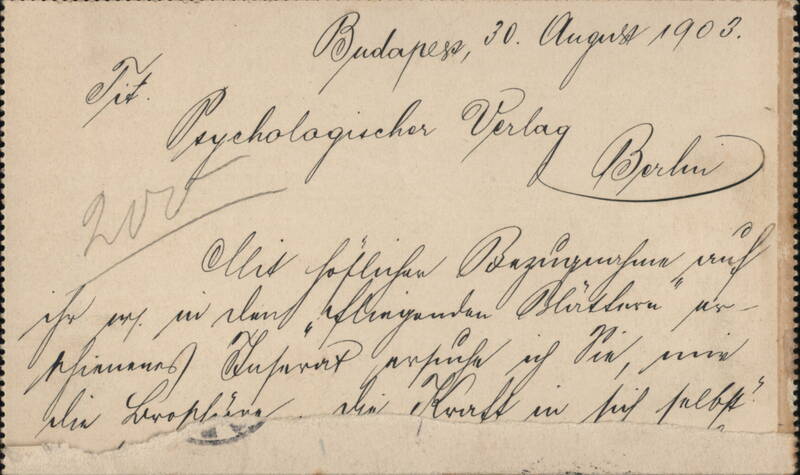 Budapest, 30. August 1903.
Tit.
Psychologischer Verlag
Berlin
200
Mit höflicher Bezugnahme auf
ihr in den "fliegenden Blättern" er-
schienenes Inserat ersuche ich Sie, mir
die Broschüre "die Kraft in sich selbst"